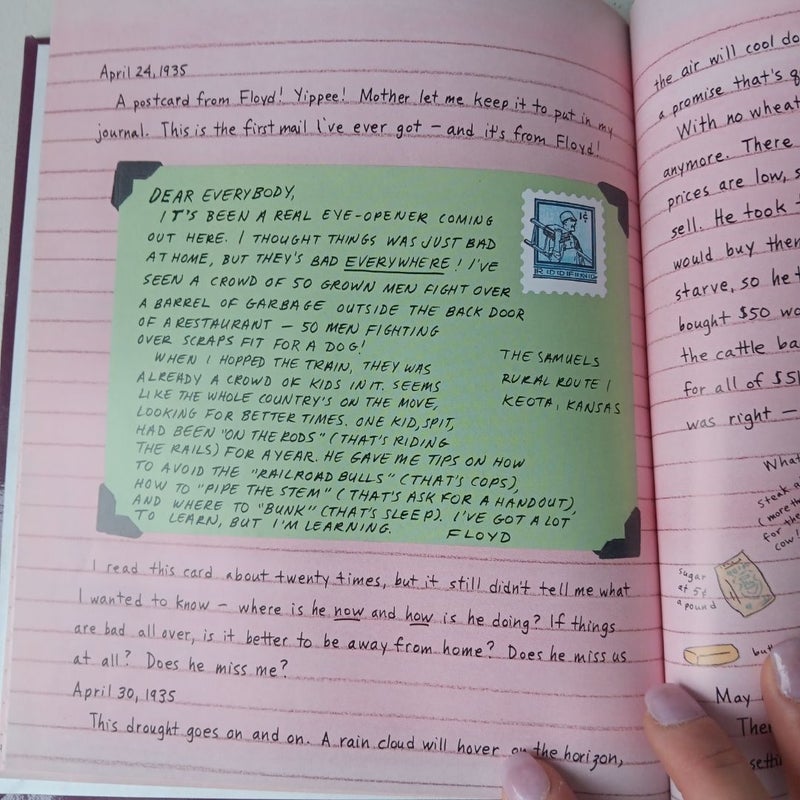 April 24, 1935
A postcard from Floyd! Yippee! Mother let me keep it to put in my
journal. This is the first mail I've ever got – and it's from Floyd!
DEAR EVERYBODY,
IT'S BEEN A REAL EYE-OPENER COMING
OUT HERE. I THOUGHT THINGS WAS JUST BAD
AT HOME, BUT THEY'S BAD EVERYWHERE! I'VE
SEEN A CROWD OF 50 GROWN MEN FIGHT OVER
A BARREL OF GARBAGE OUTSIDE THE BACK DOOR
OF A RESTAURANT – 50 MEN FIGHTING
OVER SCRAPS FIT FOR A DOG!
WHEN I HOPPED THE TRAIN, THEY WAS
ALREADY A CROWD OF KIDS IN IT. SEEMS
LIKE THE WHOLE COUNTRY'S ON THE MOVE,
LOOKING FOR BETTER TIMES. ONE KID, SPIT,
HAD BEEN "ON THE RODS" (THAT'S RIDING
THE RAILS) FOR A YEAR. HE GAVE ME TIPS ON HOW
TO AVOID THE "RAILROAD BULLS" (THAT'S COPS),
HOW TO "PIPE THE STEM" (THAT'S ASK FOR A HANDOUT),
AND WHERE TO "BUNK" (THAT'S SLEEP). I'VE GOT A LOT
TO LEARN, BUT I'M LEARNING.
FLOYD
1¢
THE SAMUELS
RURAL ROUTE 1
KEOTA, KANSAS
I read this card about twenty times, but it still didn't tell me what
I wanted to know – where is he now and how is he doing? If things
are bad all over, is it better to be away from home? Does he miss us
at all? Does he miss me?
April 30, 1935
This drought goes on and on. A rain cloud will hover on the horizon,
the air will cool do
a promise that's
With no wheat
anymore. There
prices are low, s
sell. He took
would buy them
starve, so he
bought $50 wo
the cattle ba
for all of $5
was right –
What
steak a
(more tha
for the
cow!
sugar
at 5¢
a pound
but
May
Ther
settin